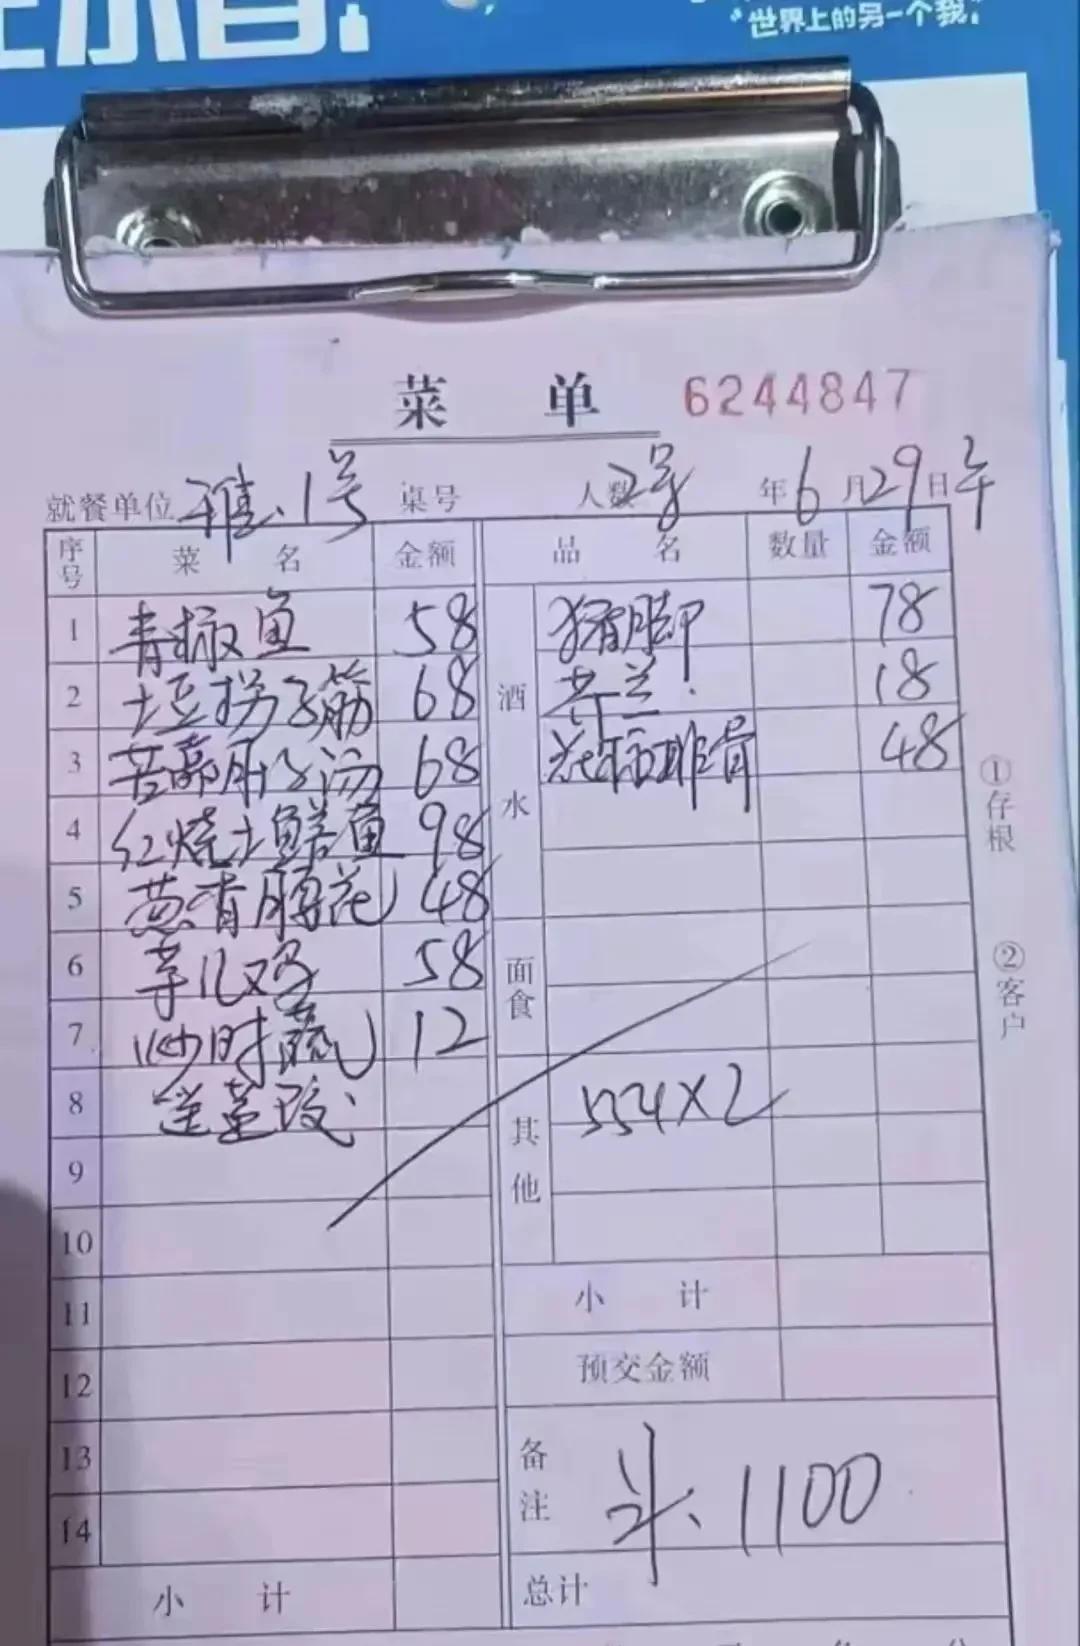 "世界上的另一个我."
菜 单 6244847
就餐单位 雅.1号 桌号 人数 2号 年 6 月 29 日 午
序号 菜 名 金额 品 名 数量 金额
1 青椒鱼 58 酒水 猪脚 78
2 土豆拐子筋 68 芥兰. 18
3 68 排骨 48
4 红烧土鳝鱼 98
5 葱香腰花 48
6 芋儿鸡 58 面食
7 炒时蔬 12
8 其他 554X2
9
10
11 小 计
12 预交金额
13 备注 1100
14
小 计 总计
①存根
②客户